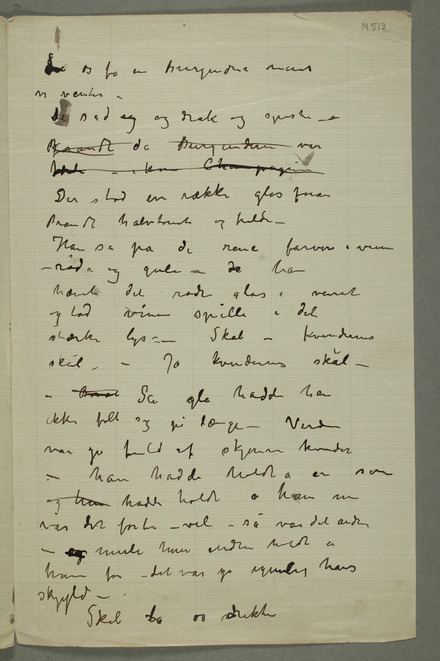 N 513
os få en Burgunder mens
vi venter –
De sad og og drak og spiste – e
Brandt da Burgunderen var
Champagne
Der stod en række glas foran
Brandt halvtomt og fulde –
Han så på de rene farver i vinen
– røde og gule – de han
hævet det røde glas i vinret
og lod vinen spille i det
stærke lys – Skål – kvindens
skål – – Jo kvindens skål –
– Så gla hadde han
ikke følt sig på længe – Verden
var jo fuld af skjønne kvinder
– han hadde holdt a en som
og hun hadde holdt a ham nu
var det forbi – vel – så var det anden
– og måtte hun anden holdt a
ham for – det var jo egentlig hans
skyld –
Skål la os drikke